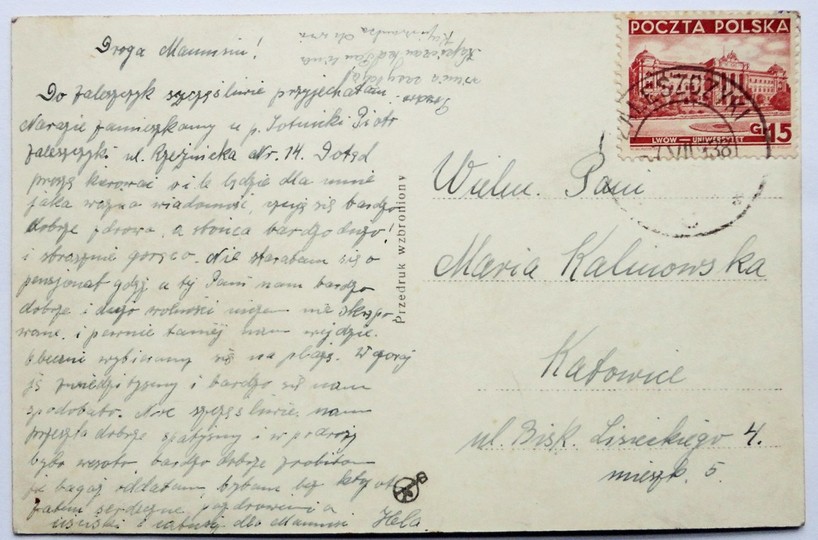 Droga Mamusiu!
Do Zaleszczyk szczęśliwie przyjechałam.
Narazie zamieszkamy u p. Sotnicki Piotr
Zaleszczyki ul. Rzeźnicka Nr. 14. Dotąd
proszę kierować będzie dla mnie
jaka ważna wiadomość, czuję się bardzo
dobrze zdrowa, a słońca bardzo dużo!
i strasznie gorąco. Nie starałam się o
pensjonat gdyż u tej Pani nam bardzo
dobrze i dużo wolności niczem nie skrępo
wane. i pewnie taniej nam wyjdzie.
Obecnie wybieramy się na plażę. Wczoraj
ją zwiedziłyśmy i bardzo się nam
spodobało. Noc szczęśliwie nam
przeszła dobrze spałyśmy i w podróży
było wesoło, bardzo dobrze zrobiłam
że bagaż oddałam,
Zatem serdeczne pozdrowienia
uściski i całusy dla Mamusi Hela
Przedruk wzbroniony
POCZTA POLSKA
GR 15
LWÓW - UNIWERSYTET
ZALESZCZYKI
VII 38
Wielm. Pani
Maria Kalinowska
Katowice
ul. Bisk. Lisieckiego 4.
mieszk. 5.